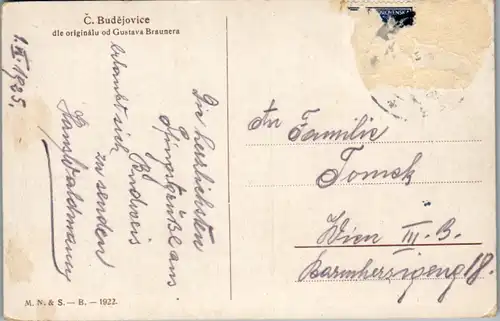 Č. Budějovice
dle originálu od Gustava Braunera
1. IX. 1925.
Die herzlichsten
Pfingstgrüße aus
Budweis
erlaubt sich
zu senden
Hans Waldmann
An Familie
Tomsk
Wien III. B.
Barmherzigeng 18
M. N. & S. — B. — 1922.